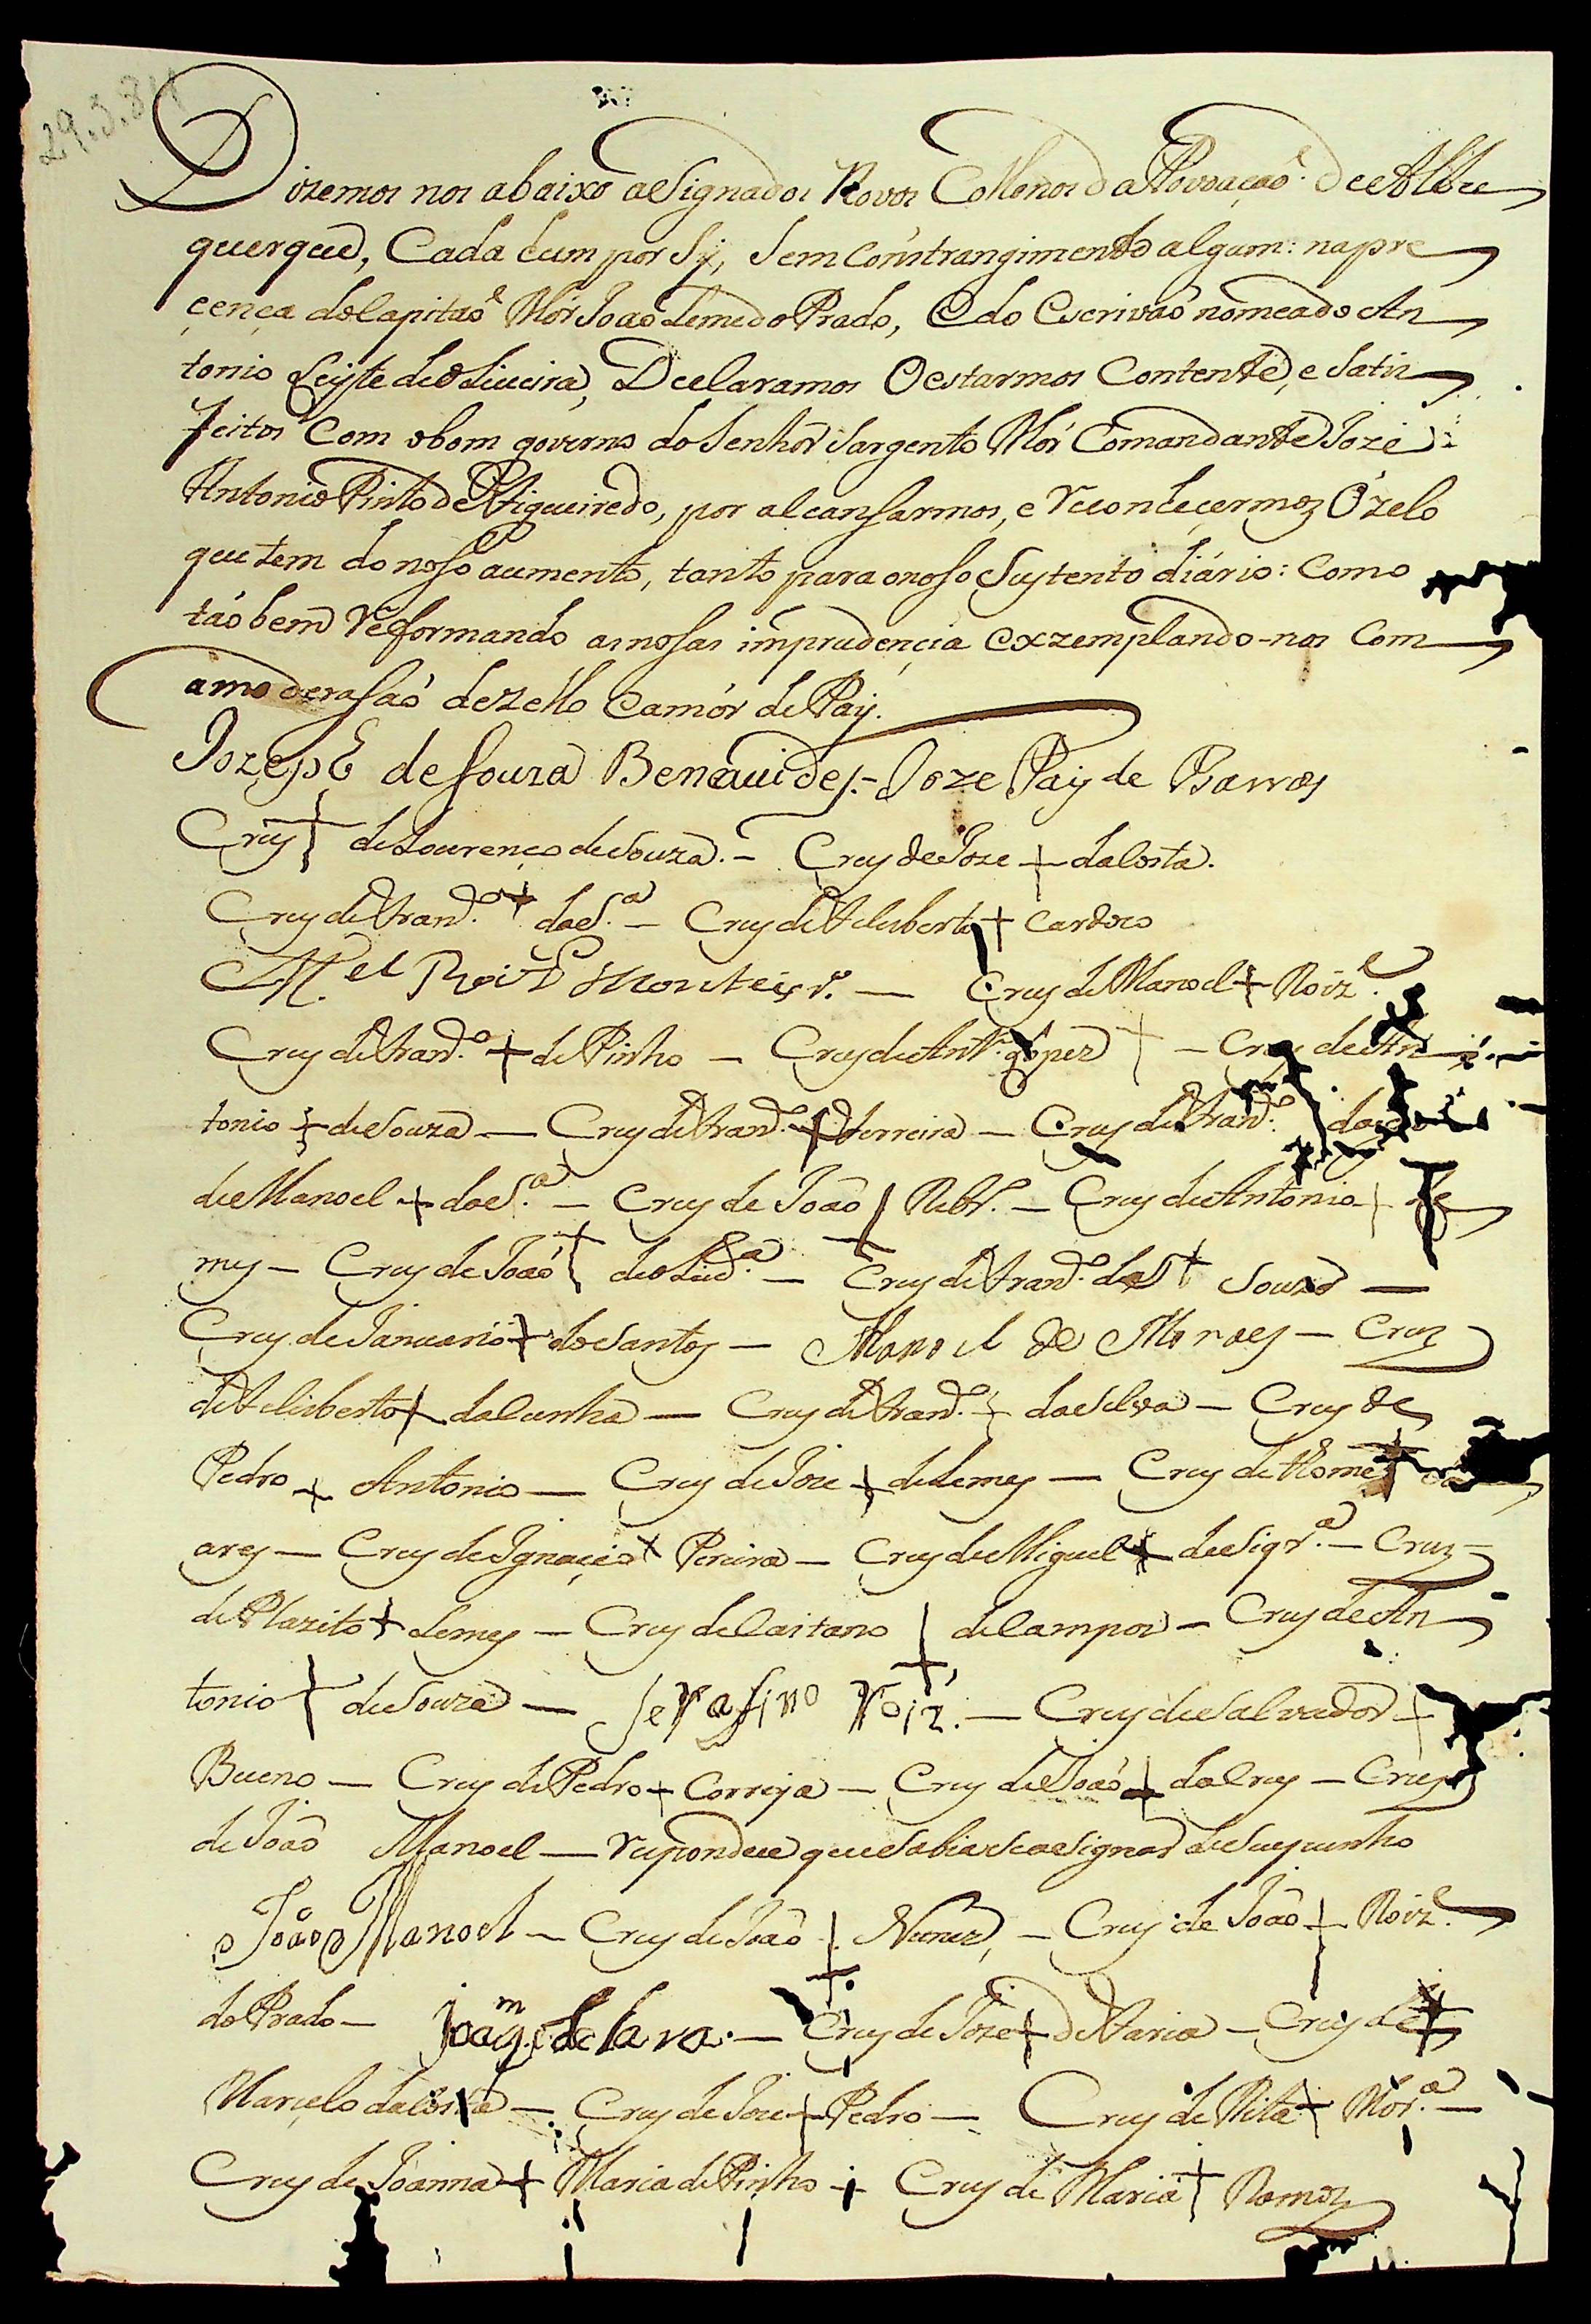 29.3.84
Dizemos nos abaixo asignados Povos Collonos da Povoaçaõ. de Albu
querque, Cada hum por Sy, Sem Constrangimento algum: na pre
cença do Capitaõ Mór Joaõ Leme do Prado, e do Escrivaõ nomeado An
tonio Leyte de Oliveira, Declaramos o estarmos Contente, e Satis
feitos Com o bom governo do Senhor Sargento Mór Comandante Joze
Antonio Pinto de Figueiredo, por alcansarmos, e reconheçermos O zelo
que tem do noso aumento, tanto para o noso Sustento diário: Como
taõ bem reformando as nosas imprudençia exzemplando-nos Com
a moderasaõ de zello e amór de Pay.
Jozeph de Souza Benauides.- Joze Pays de Barros
Crus + de Lourenço de Souza. - Crus de Joze + da Costa.
Crus de Fran.co + da S.a - Crus de Feliberto + Cardozo
M.el Roiz Monteyr.o — Crus de Manoel + Roiz.
Crus de Fran.co + de Pinho - Crus de Ant.o Lopez + - Crus de An
tonio + de Souza - Crus de Fran.co + Ferreira - Crus de Fran.co
de Manoel + da S.a - Crus de Joaõ + Ribr.o - Crus de Antonio + Le
mes - Crus de Joaõ + de Siq.a - Crus de Fran.co de + Souza —
Crus de Januario + dos Santos - Manoel de Moraes - Cruz
de Feliberto + da Cunha - Crus de Fran.co + da Silva - Crus de
Pedro + Antonio - Crus de Joze + de Lemes - Crus de Thome +
ares - Crus de Ignaçio + Pereira - Crus de Miguel + de Siqr.a - Cruz
de Plazito + Lemes - Crus de Caitano + de Campos - Crus de An
tonio + de Souza - Serafino Roiz. - Crus de Salvador +
Bueno - Crus de Pedro + Correya - Crus de Joaõ + da Crus - Crus
de Joaõ Manoel - respondeu que Sabia Se asignar de Seu punho
Joaõ Manoel - Crus de Joaõ + Nunez, - Crus de Joaõ + Roiz.
do Prado - Joaq.m de Lara. - Crus de Joze + de Faria - Crus de +
Marcelo da Costa - Crus de Joze + Pedro - Crus de Rita + Mor.a -
Crus de Joanna + Maria de Pinho + Crus de Maria + Ramos